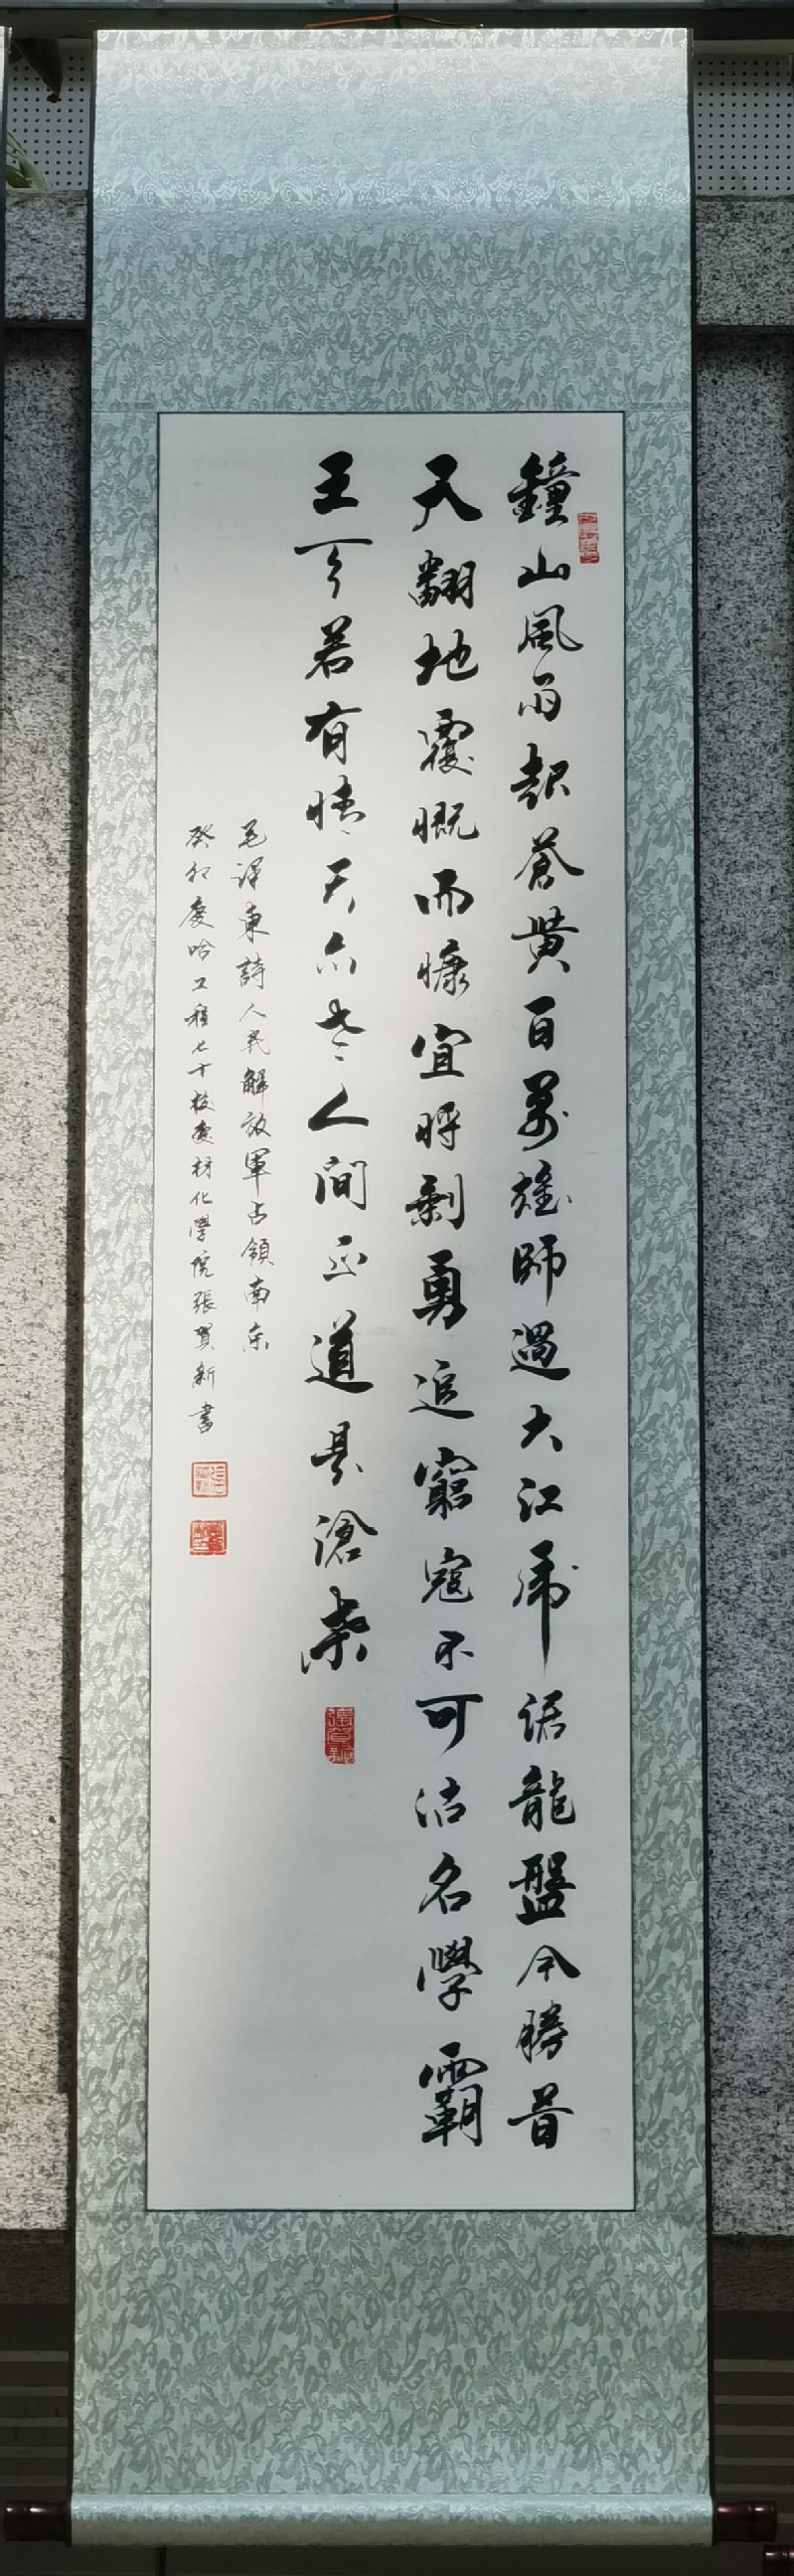 鐘山風雨起蒼黃百萬雄師過大江虎踞龍盤今勝昔
天翻地覆慨而慷宜將剩勇追窮寇不可沽名學霸
王天若有情天亦老人間正道是滄桑
毛澤東詩人民解放軍占領南京
癸卯慶哈工程七十校慶材化學院張賀新書
張賀新